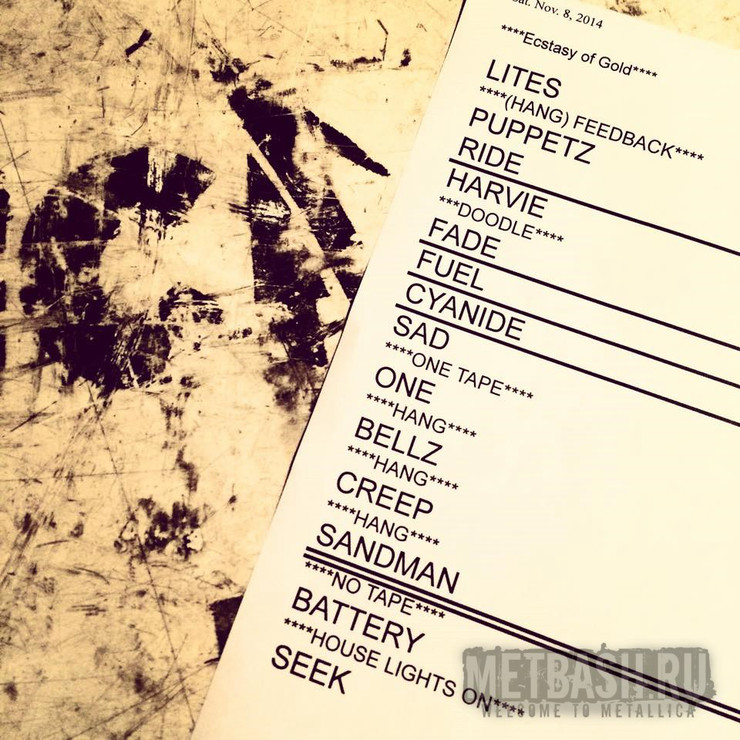 Sat. Nov. 8, 2014
****Ecstasy of Gold****
LITES
****(HANG) FEEDBACK****
PUPPETZ
RIDE
HARVIE
***DOODLE****
FADE
FUEL
CYANIDE
SAD
****ONE TAPE****
ONE
****HANG****
BELLZ
****HANG****
CREEP
****HANG****
SANDMAN
****NO TAPE****
BATTERY
****HOUSE LIGHTS ON****
SEEK
METBASH.RU
WELCOME TO METALLICA